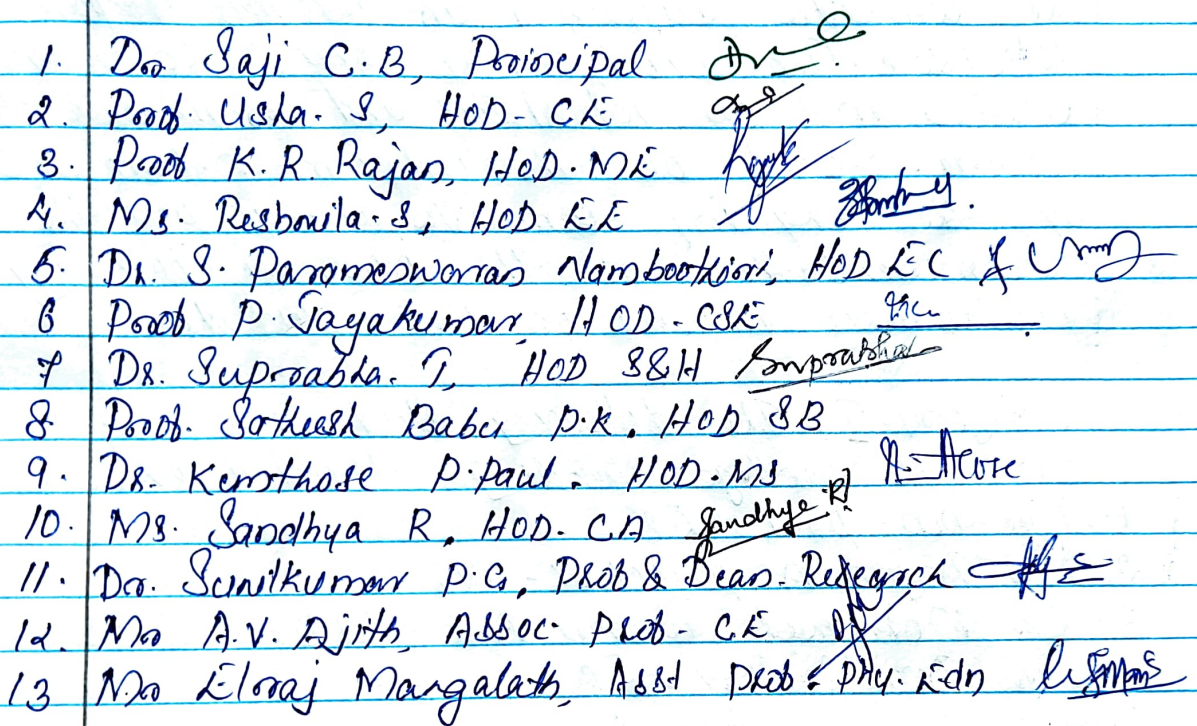 1. Dr Saji C.B, Principal
2. Prof. Usha. S, HOD - CE
3. Prof K.R. Rajan, HOD. ME
4. Ms. Reshmila. S, HOD EE
5. Dr. S. Parameswaran Namboothiri, HOD EC
6 Prof P. Jayakumar, HOD - CSE
7 Dr. Suprabha. T, HOD S&H Suprabha
8. Prof. Satheesh Babu P.K. HOD SB
9. Dr. Kemthose P. Paul. HOD. MS
10. Ms. Sandhya R, HOD. CA Sandhya R
11. Dr. Sunilkumar P.G, Prof & Dean - Research
12. Mr A.V. Ajith, Assoc. Prof - CE
13 Mr Eloraj Mangalath, Asst Prof. Phy. Edn